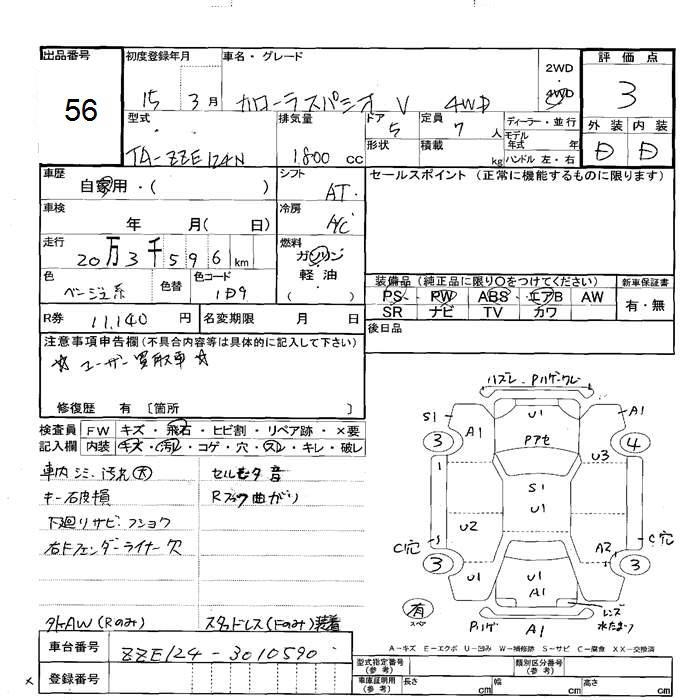 出品番号
56
初度登録年月
15 3月
車名・グレード
カローラスパシオ V 4WD
2WD
・
4WD
評価点
3
外装 内装
D D
型式
TA-ZZE124N
排気量
1,800 cc
ドア
5
定員
7人
形状
積載
kg
ディーラー・並行
モデル年式 年
ハンドル 左・右
車歴
自家用・( )
シフト
AT
セールスポイント (正常に機能するものに限ります)
車検
年 月( 日)
冷房
A/C
走行
20万3千596km
燃料
ガソリン
・
軽油
( )
色
ベージュ系
色替
色コード
1D9
装備品 (純正品に限り○をつけてください)
PS・PW・ABS・エアB AW
SR ナビ TV カワ
新車保証書
有・無
R券
11,140 円
名変期限 月 日
後日品
注意事項申告欄 (不具合内容等は具体的に記入して下さい)
☆ ユーザー買取車 ☆
修復歴 有 〔箇所 〕
検査員記入欄
FW キズ・飛石・ヒビ割・リペア跡・×要
内装 キズ・汚れ・コゲ・穴・スレ・キレ・破レ
車内シミ 汚れ大
キー破損
下廻りサビ・フショク
右Fフェンダーライナー穴
セルモータ音
Rフック曲がり
タイヤAW(Rのみ)
スタッドレス(Fのみ)装着
ハズレ・Pハゲ・ワレ
S1
A1
U1
A1
3
4
Pアセ
U3
1
S1
U1
U2
S
C穴
C穴
A2
3
3
U1
U1
A1
U1
有
スペ
Pハゲ
A1
レンズ
水たまり
A-キズ E-エクボ U-凹み W-補修跡 S-サビ C-腐食 XX-交換済
車台番号
ZZE124-3010590
登録番号
型式指定番号
(参考)
類別区分番号
(参考)
車庫証明用
(参考)
長さ cm
幅 cm
高さ cm